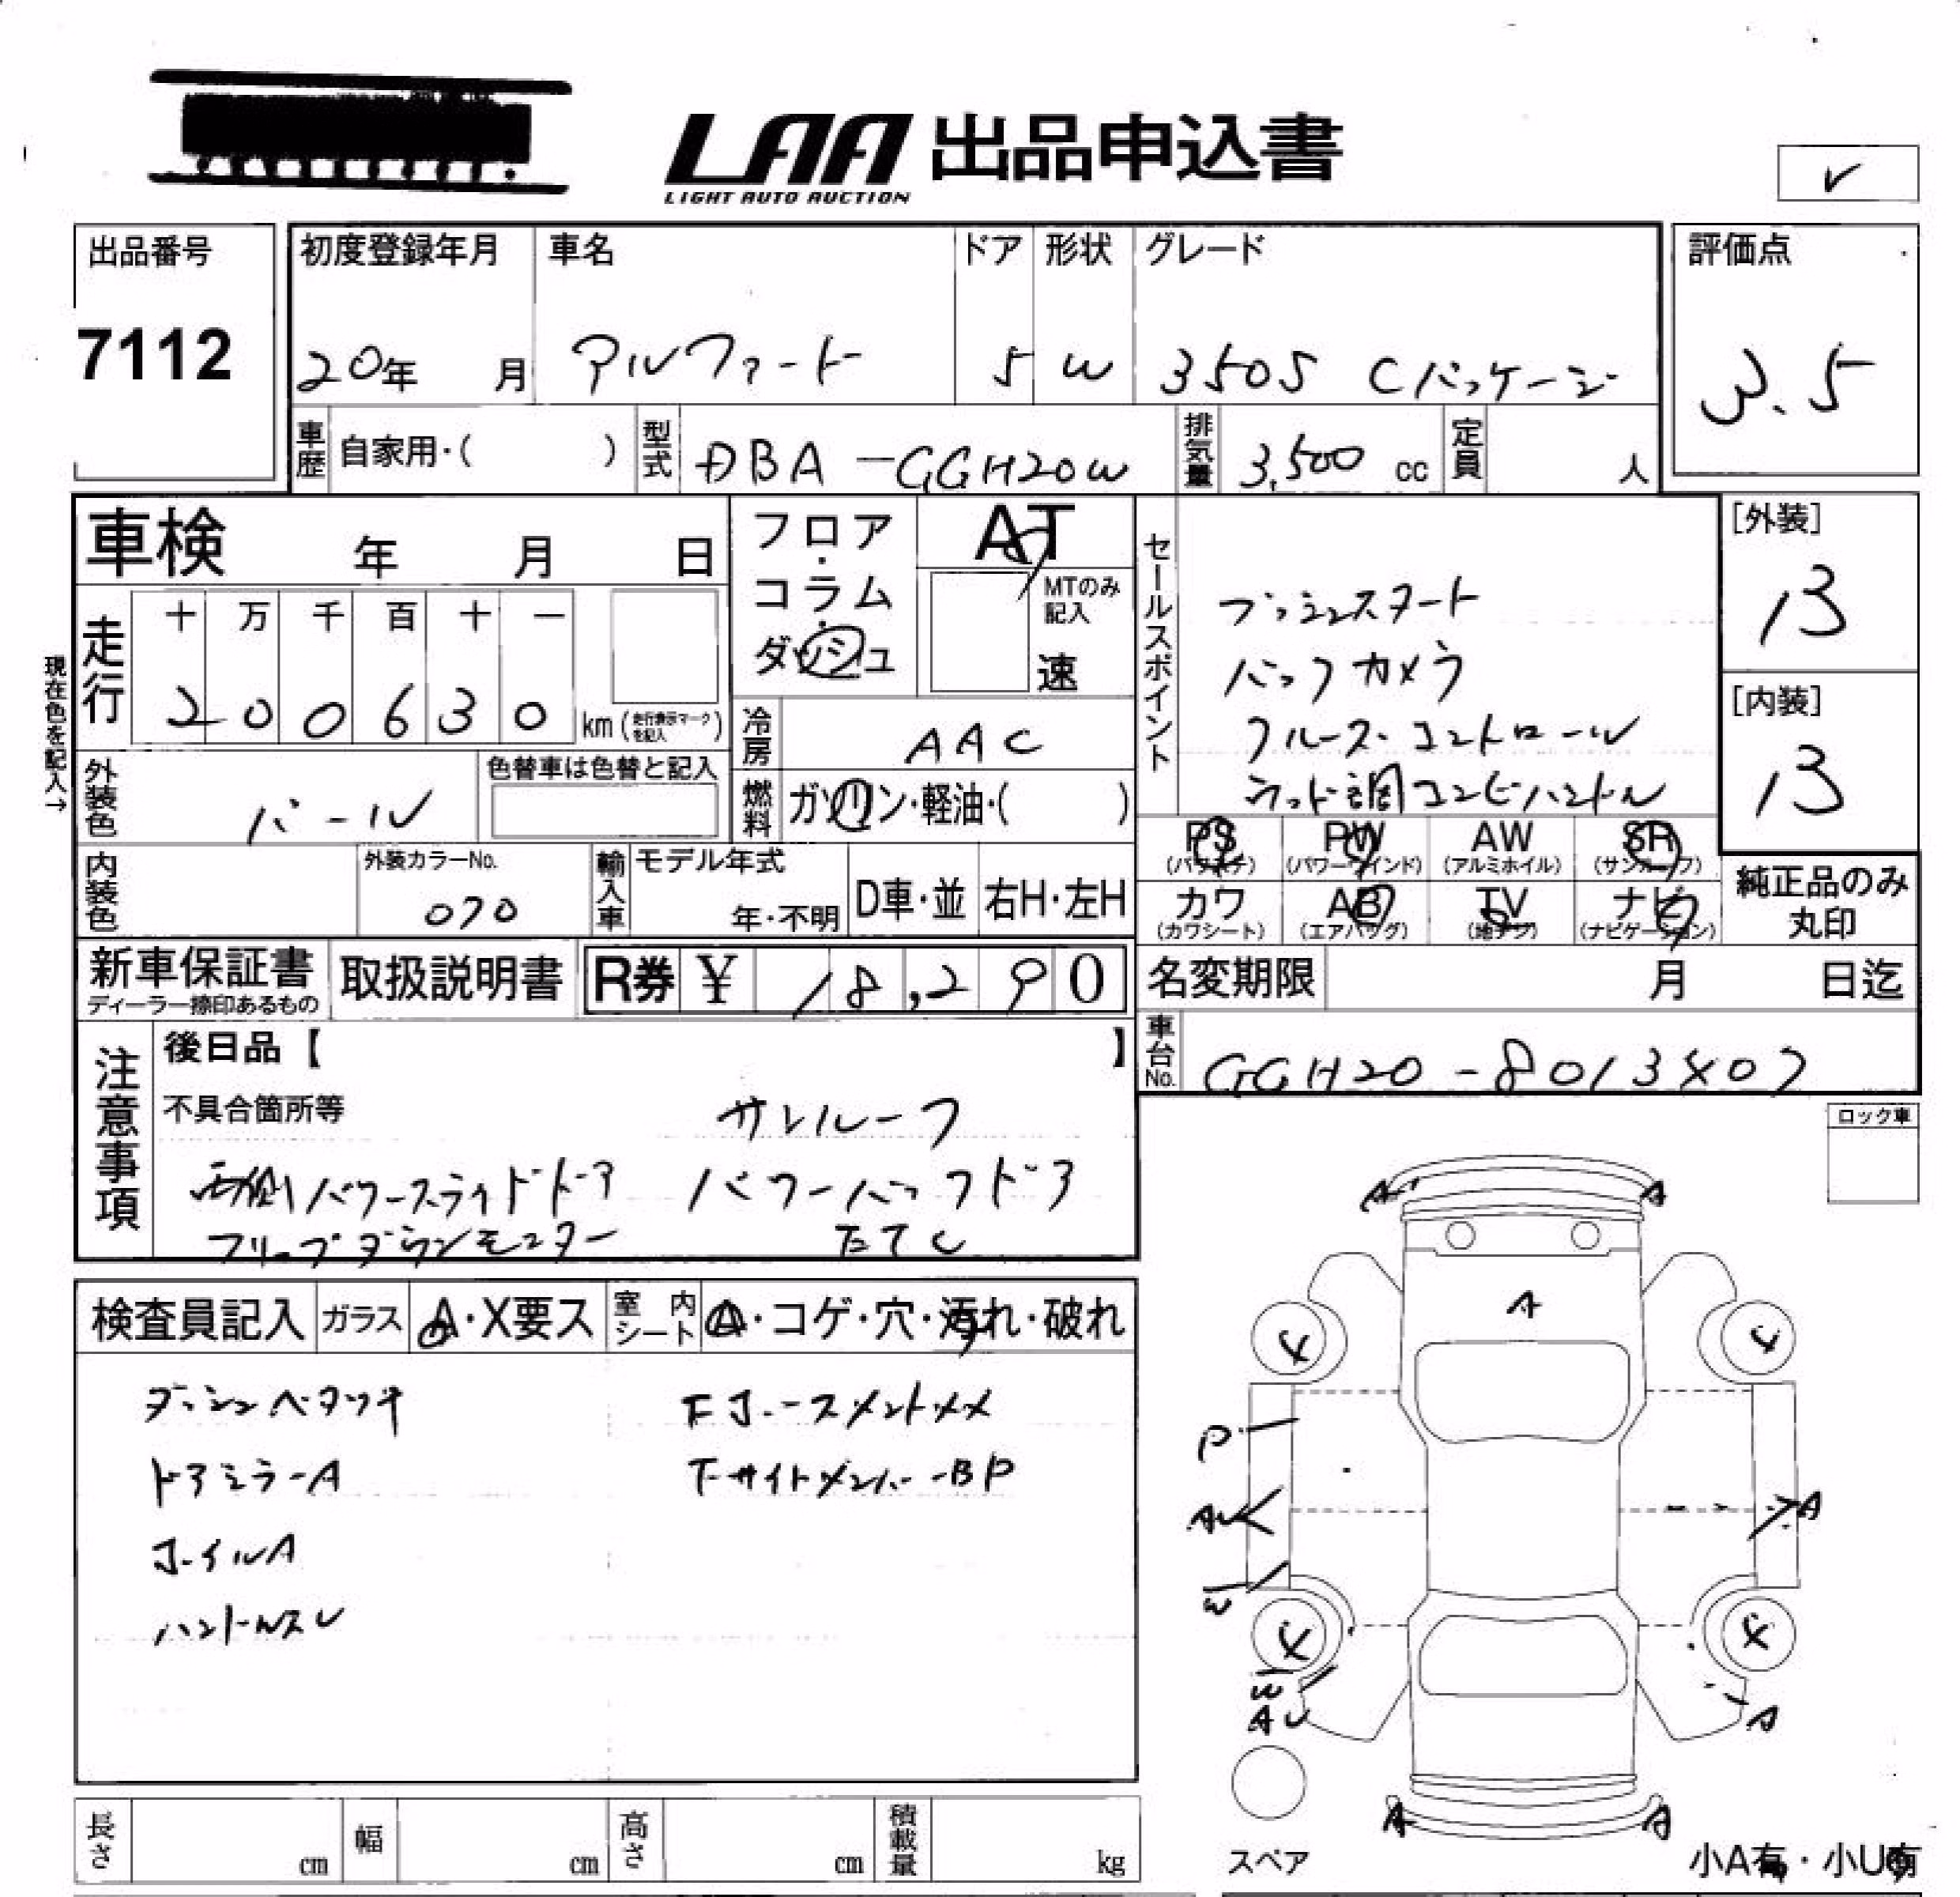 LAA 出品申込書
LIGHT AUTO AUCTION
出品番号
7112
初度登録年月
20年 月
車名
アルファード
ドア
5
形状
W
グレード
350S Cパッケージ
評価点
3.5
車歴 自家用・( )
型式 DBA-GGH20W
排気量 3,500 cc
定員 人
車検 年 月 日
フロア・コラム・ダッシュ
AT
MTのみ記入
速
セールスポイント
プッシュスタート
バックカメラ
クルーズコントロール
ウッド調コンビハンドル
[外装]
B
[内装]
B
現在色を記入→
走行
十 万 千 百 十 一
2 0 0 6 3 0 km (走行表示マークを記入)
冷房 AAC
外装色 パール
色替車は色替と記入
燃料 ガソリン・軽油・( )
PS (パワステ)
PW (パワーウインド)
AW (アルミホイル)
SR (サンルーフ)
内装色
外装カラーNo.
070
輸入車 モデル年式
年・不明
D車・並 右H・左H
カワ (カワシート)
AB (エアバッグ)
TV (地デジ)
ナビ (ナビゲーション)
純正品のみ丸印
新車保証書
ディーラー捺印あるもの
取扱説明書
R券 ¥ 18,290
名変期限 月 日迄
車台No. GGH20-8013407
注意事項
後日品【 】
不具合箇所等 サンルーフ
両側パワースライドドア パワーバックドア
フリップダウンモニター
ロック車
検査員記入 ガラス A・X要ス 室内シート A・コゲ・穴・汚れ・破れ
ドアミラーA
ホイルA
ハンドルスレ
下サイドメンバーBP
A A
A
P
AU A
W
W
AU A
A A
長さ cm 幅 cm 高さ cm 積載量 kg
スペア
小A有・小U有